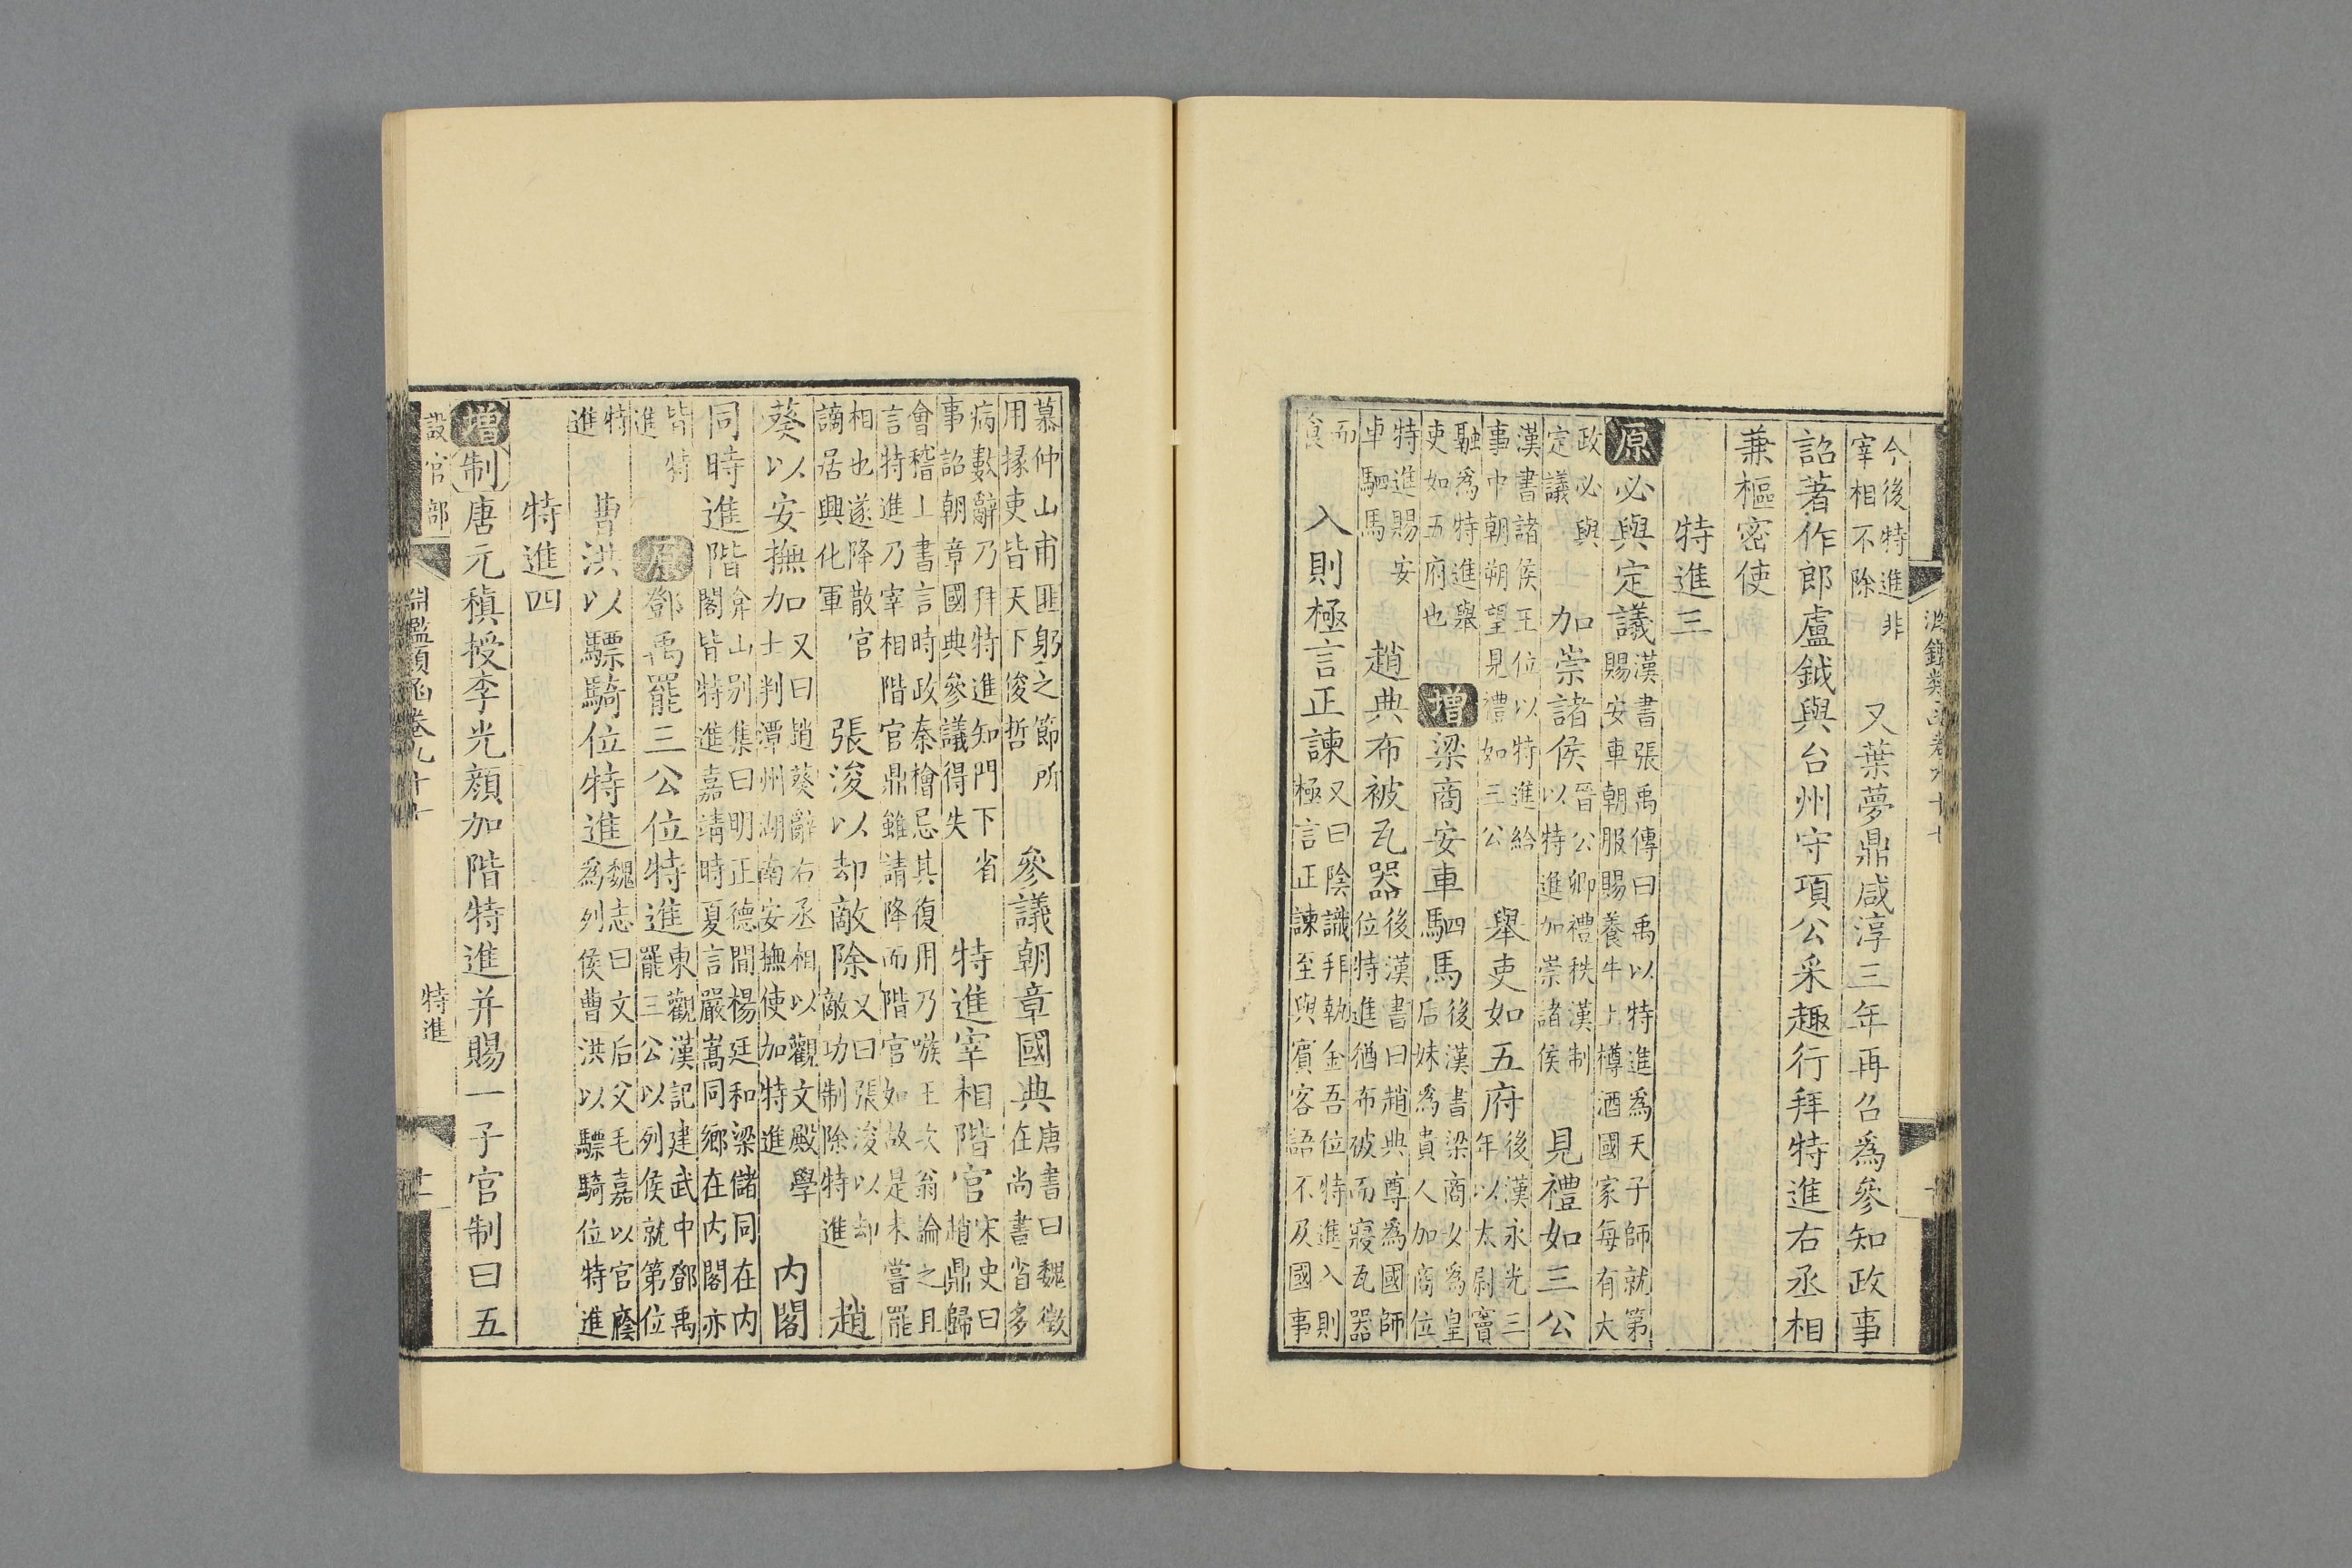 今後特進非
宰相不除
又葉夢鼎咸淳三年再召爲參知政事
詔著作郎盧鉞與台州守項公采趣行拜特進右丞相
兼樞密使
特進三
原必與定議
漢書張禹傳曰禹以特進爲天子師就第
賜安車朝服賜養牛上樽酒國家每有大
政必與
定議
加崇諸侯
晉公卿禮秩漢制
以特進加崇諸侯
見禮如三公
漢書諸侯王位以特進給
事中朝朔望見禮如三公
舉吏如五府
後漢永光三
年以太尉竇
融爲特進舉
吏如五府也
增梁商安車駟馬
後漢書梁商女爲皇
后妹爲貴人加商位
特進賜安
車駟馬
趙典布被瓦器
後漢書曰趙典尊爲國師
位特進猶布被而寢瓦器
而
食
入則極言正諫
又曰陰識拜執金吾位特進入則
極言正諫至與賓客語不及國事
慕仲山甫匪躬之節所
用掾吏皆天下俊哲
參議朝章國典
唐書曰魏徵
在尚書省多
病數辭乃拜特進知門下省
事詔朝章國典參議得失
特進宰相階官
宋史曰
趙鼎歸
會稽上書言時政秦檜忌其復用乃嗾王次翁論之且
言特進乃宰相階官鼎雖請降而階官如故是未嘗罷
相也遂降散官
謫居興化軍
張浚以却敵除
又曰張浚以却
敵功制除特進
趙
葵以安撫加
又曰趙葵辭右丞相以觀文殿學
士判潭州湖南安撫使加特進
内閣
同時進階
弇山別集曰明正德間楊廷和梁儲同在内
閣皆特進嘉靖時夏言嚴嵩同鄉在内閣亦
皆特
進
原鄧禹罷三公位特進
東觀漢記建武中鄧禹
罷三公以列侯就第位
特
進
曹洪以驃騎位特進
魏志曰文后父毛嘉以官廕
爲列侯曹洪以驃騎位特進
特進四
增制唐元稹授李光顏加階特進并賜一子官制曰五
設官部
淵鑑類函卷九十七
特進